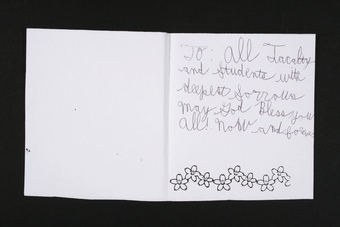 To: All Faculty
and Students with
deepest Sorrows
May God Bless you
All! Now and forever